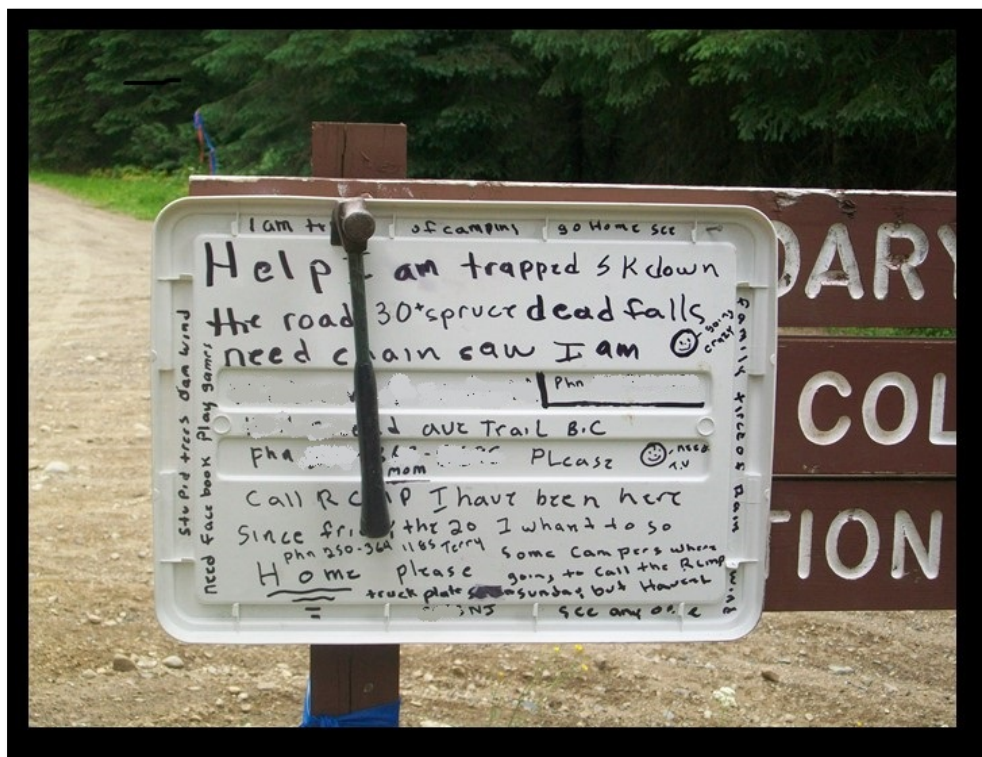 I am of camping go Home see
Help I am trapped 5 K down
the road 30+ spruce dead falls
need chain saw I am
going
crazy
Phn
ave Trail B.C
Phn PLease
need
T.V
mom
Call RCMP I have been here
since friday the 20 I whant to so
phn 250-364 1185 Terry some campers where
Home please going to call the Rcmp
truck plate sunday but Havent
NJ see any one
stupid trees dam wind
need facebook Play games
family tired of Rain
wind
DARY
COL
TION